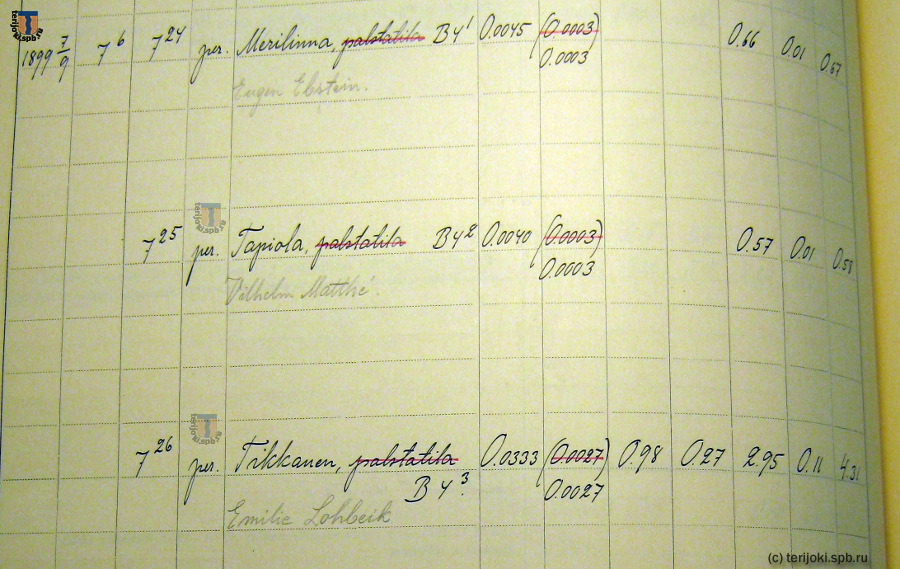 terijoki.spb.ru
1899 7/9 7⁶ 7²⁴ per. Merilinna, palstatila B4¹ 0.0045 (0.0003) 0.66 0.01 0.67
0.0003
Eugen Ebstein.
terijoki.spb.ru
7²⁵ per. Tapiola, palstatila B4² 0.0040 (0.0003) 0.57 0.01 0.58
0.0003
Vilhelm Matthé.
terijoki.spb.ru
7²⁶ per. Tikkanen, palstatila 0.0333 (0.0027) 0.98 0.27 2.95 0.11 4.31
B4³. 0.0027
Emilie Lohbeik
(c) terijoki.spb.ru